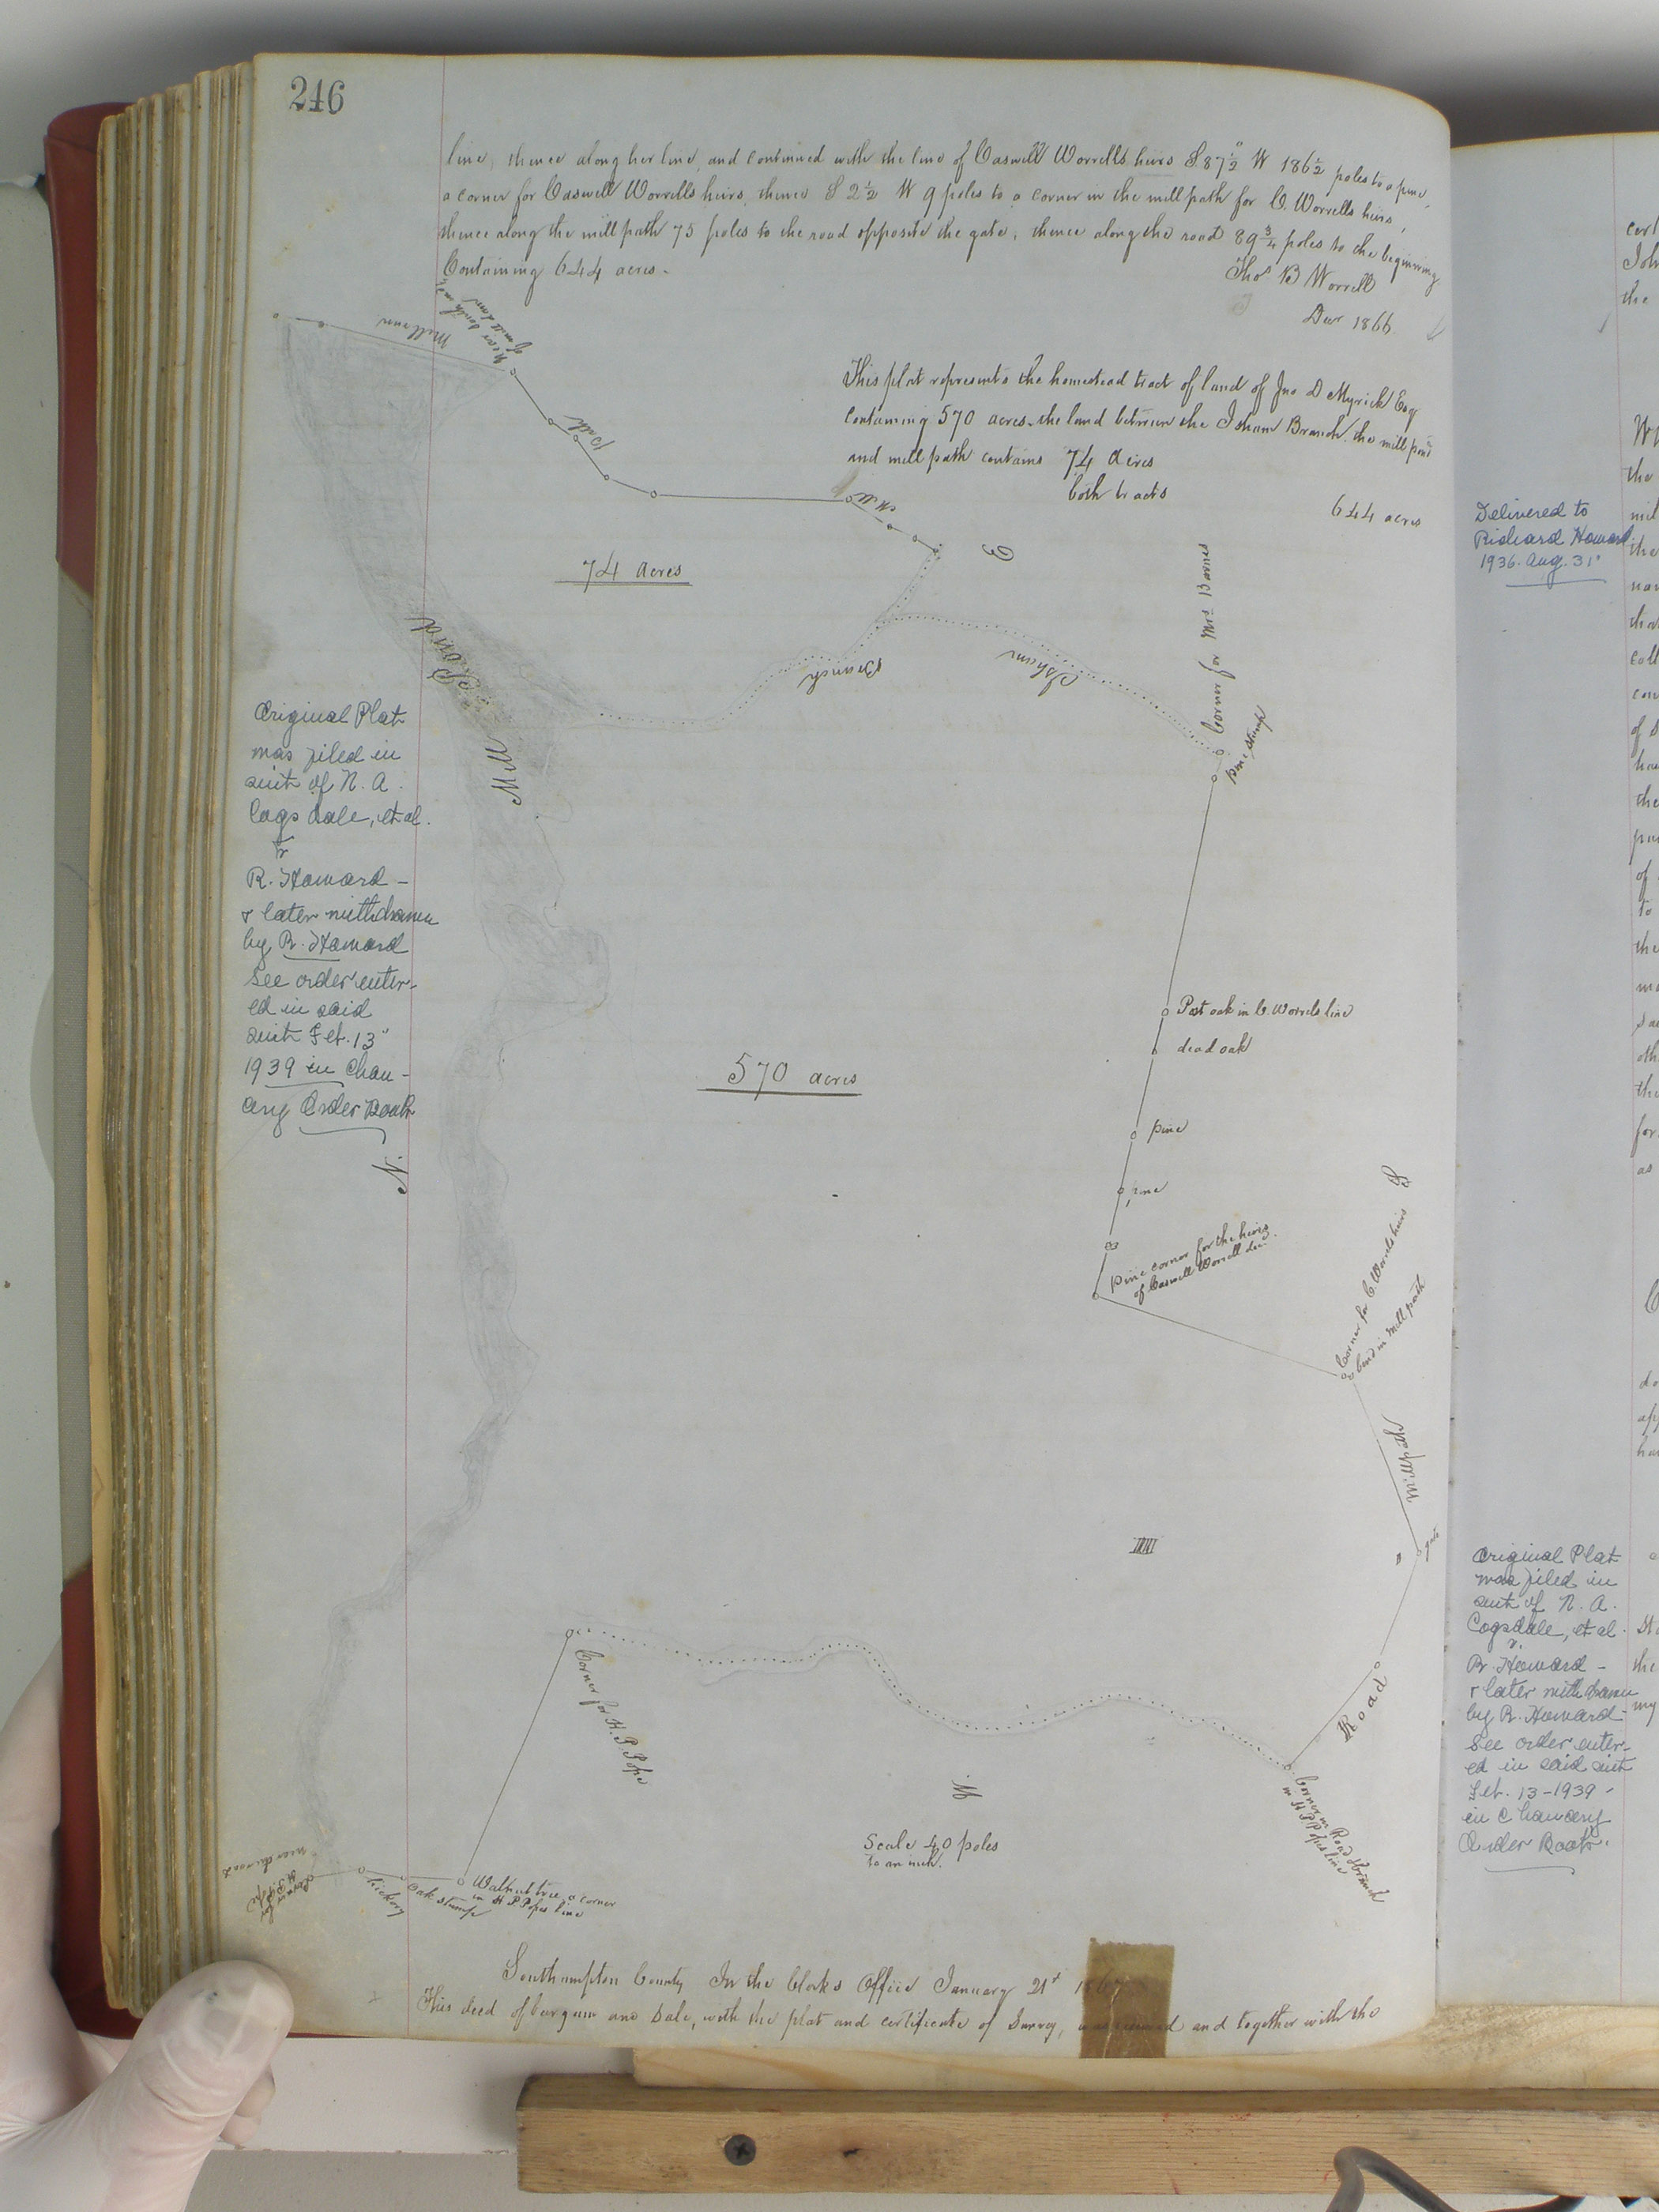 246
line, thence along her line, and continued with the line of Caswell Worrells heirs S 87½° W 186½ poles to a pine,
a corner for Caswell Worrells heirs, thence S 2½ W 9 poles to a corner in the mill path for C. Worrells heirs,
thence along the mill path 75 poles to the road opposite the gate, thence along the road 89¾ poles to the beginning
Containing 644 acres.
Thos B Worrell
Decr 1866
This plat represents the homestead tract of land of Jno D Myrick Esq
containing 570 acres. the land between the Isham Branch, the mill pond
and mill path contains 74 acres
both tracts
644 acres
Mill run
near south end
of mill dam
Path
Mill
E
74 acres
Mill Pond
Branch
Isham
Corner for Mrs Barnes
pine stump
Delivered to
Richard Howard
1936. Aug. 31"
Original Plat
was filed in
suit of N. A.
Cogsdale, et al.
v
R. Howard -
& later withdrawn
by R. Howard
See order enter-
ed in said
suit Feb. 13"
1939 in Chan-
cery Order Book
N
570 acres
Post oak in C. Worrels line
dead oak
pine
pine
Pine corner for the heirs
of Caswell Worrell dec.
Corner for C. Worrels heirs
bend in mill path
S
Mill path
gate
Road
Corner for H. P. Pope
W
Scale 40 poles
to an inch.
Corner in Road & branch
in H P Popes line
Corner for
H. P. Pope
near the road
hickory
oak stump
Walnut tree, a corner
in H P Popes line
Original Plat
was filed in
suit of N. A.
Cogsdale, et al.
v.
R. Howard -
& later withdrawn
by R. Howard -
See order enter-
ed in said suit
Feb. 13-1939 -
in Chancery
Order Book.
Southampton County In the Clerks Office January 21st 1867
This deed of bargain and Sale, with the plat and certificate of Survey, was received and together with the